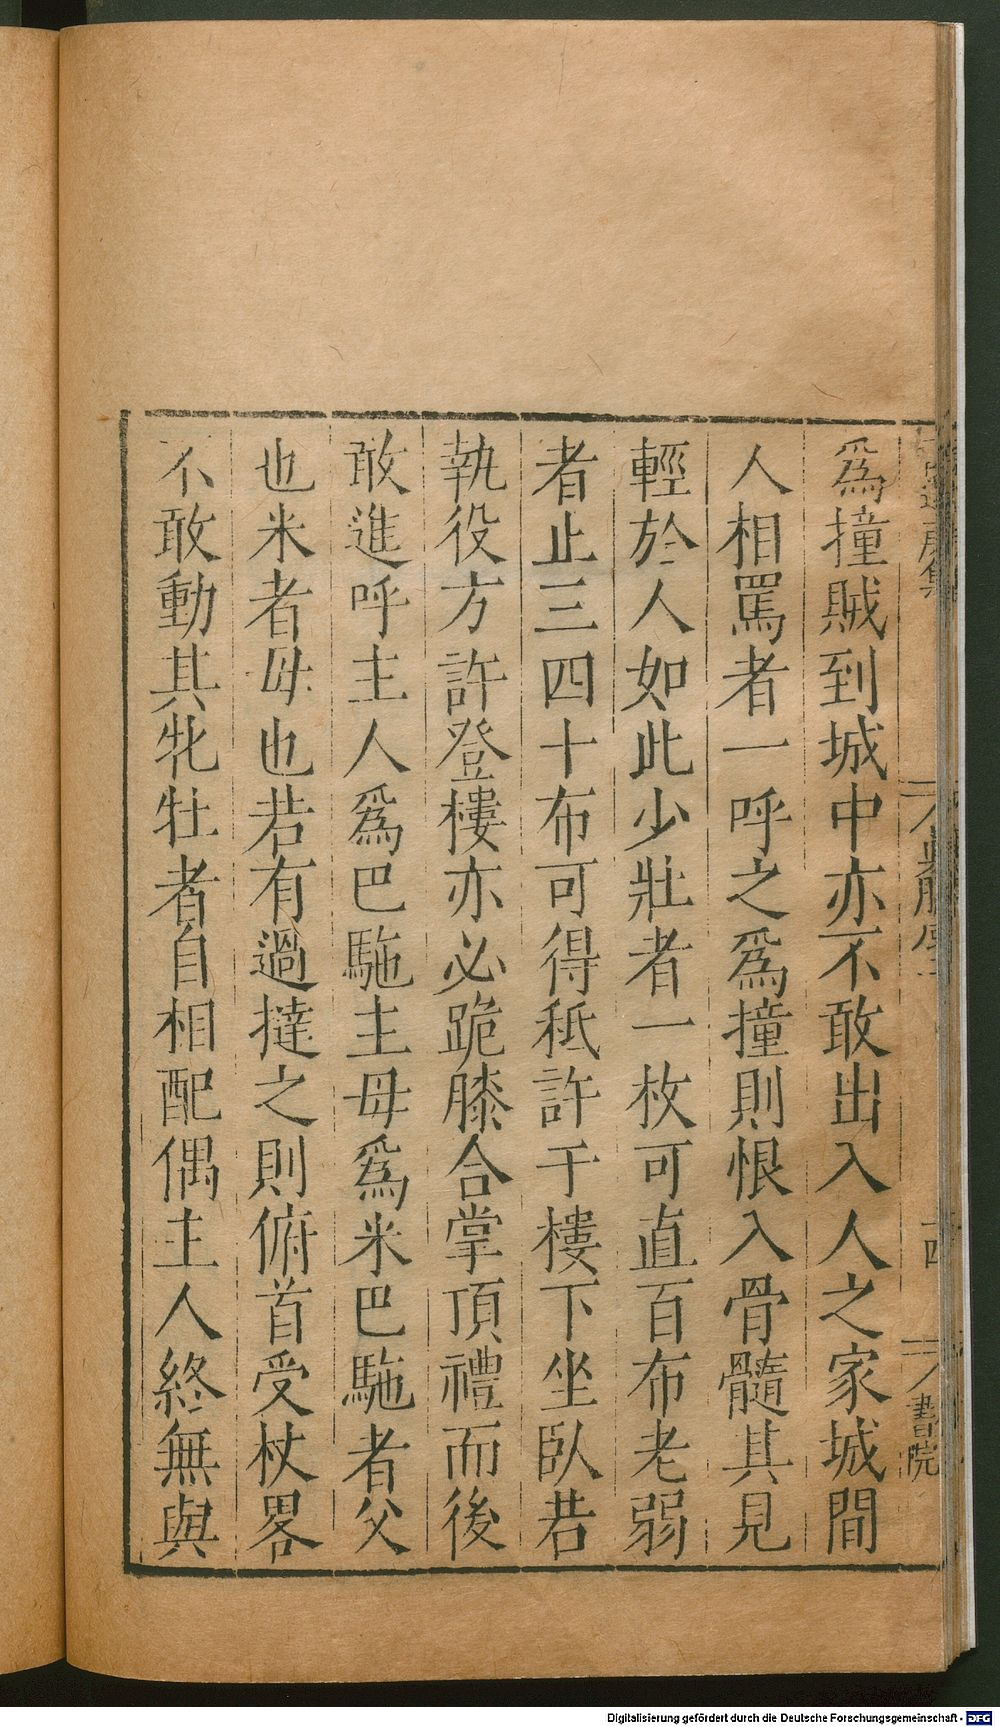 爲撞賊到城中亦不敢出入人之家城間
人相罵者一呼之爲撞則恨入骨髓其見
輕於人如此少壯者一枚可直百布老弱
者止三四十布可得秪許于樓下坐臥若
執役方許登樓亦必跪膝合掌頂禮而後
敢進呼主人爲巴駞主母爲米巴駞者父
也米者母也若有過撻之則俯首受杖畧
不敢動其牝牡者自相配偶主人終無與
四
書院
Digitalisierung gefördert durch die Deutsche Forschungsgemeinschaft - DFG